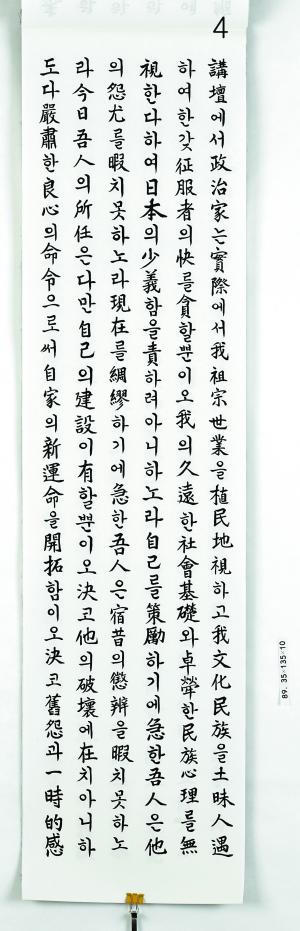 4
講壇에서政治家는實際에서我祖宗世業을植民地視하고我文化民族을土昧人遇
하여한갓征服者의快를貪할뿐이오我의久遠한社會基礎와卓犖한民族心理를無
視한다하여日本의少義함을責하려아니하노라自己를策勵하기에急한吾人은他
의怨尤를暇치못하노라現在를綢繆하기에急한吾人은宿昔의懲辨을暇치못하노
라今日吾人의所任은다만自己의建設이有할뿐이오決코他의破壞에在치아니하
도다嚴肅한良心의命令으로써自家의新運命을開拓함이오決코舊怨과一時的感
89. 35×135×10